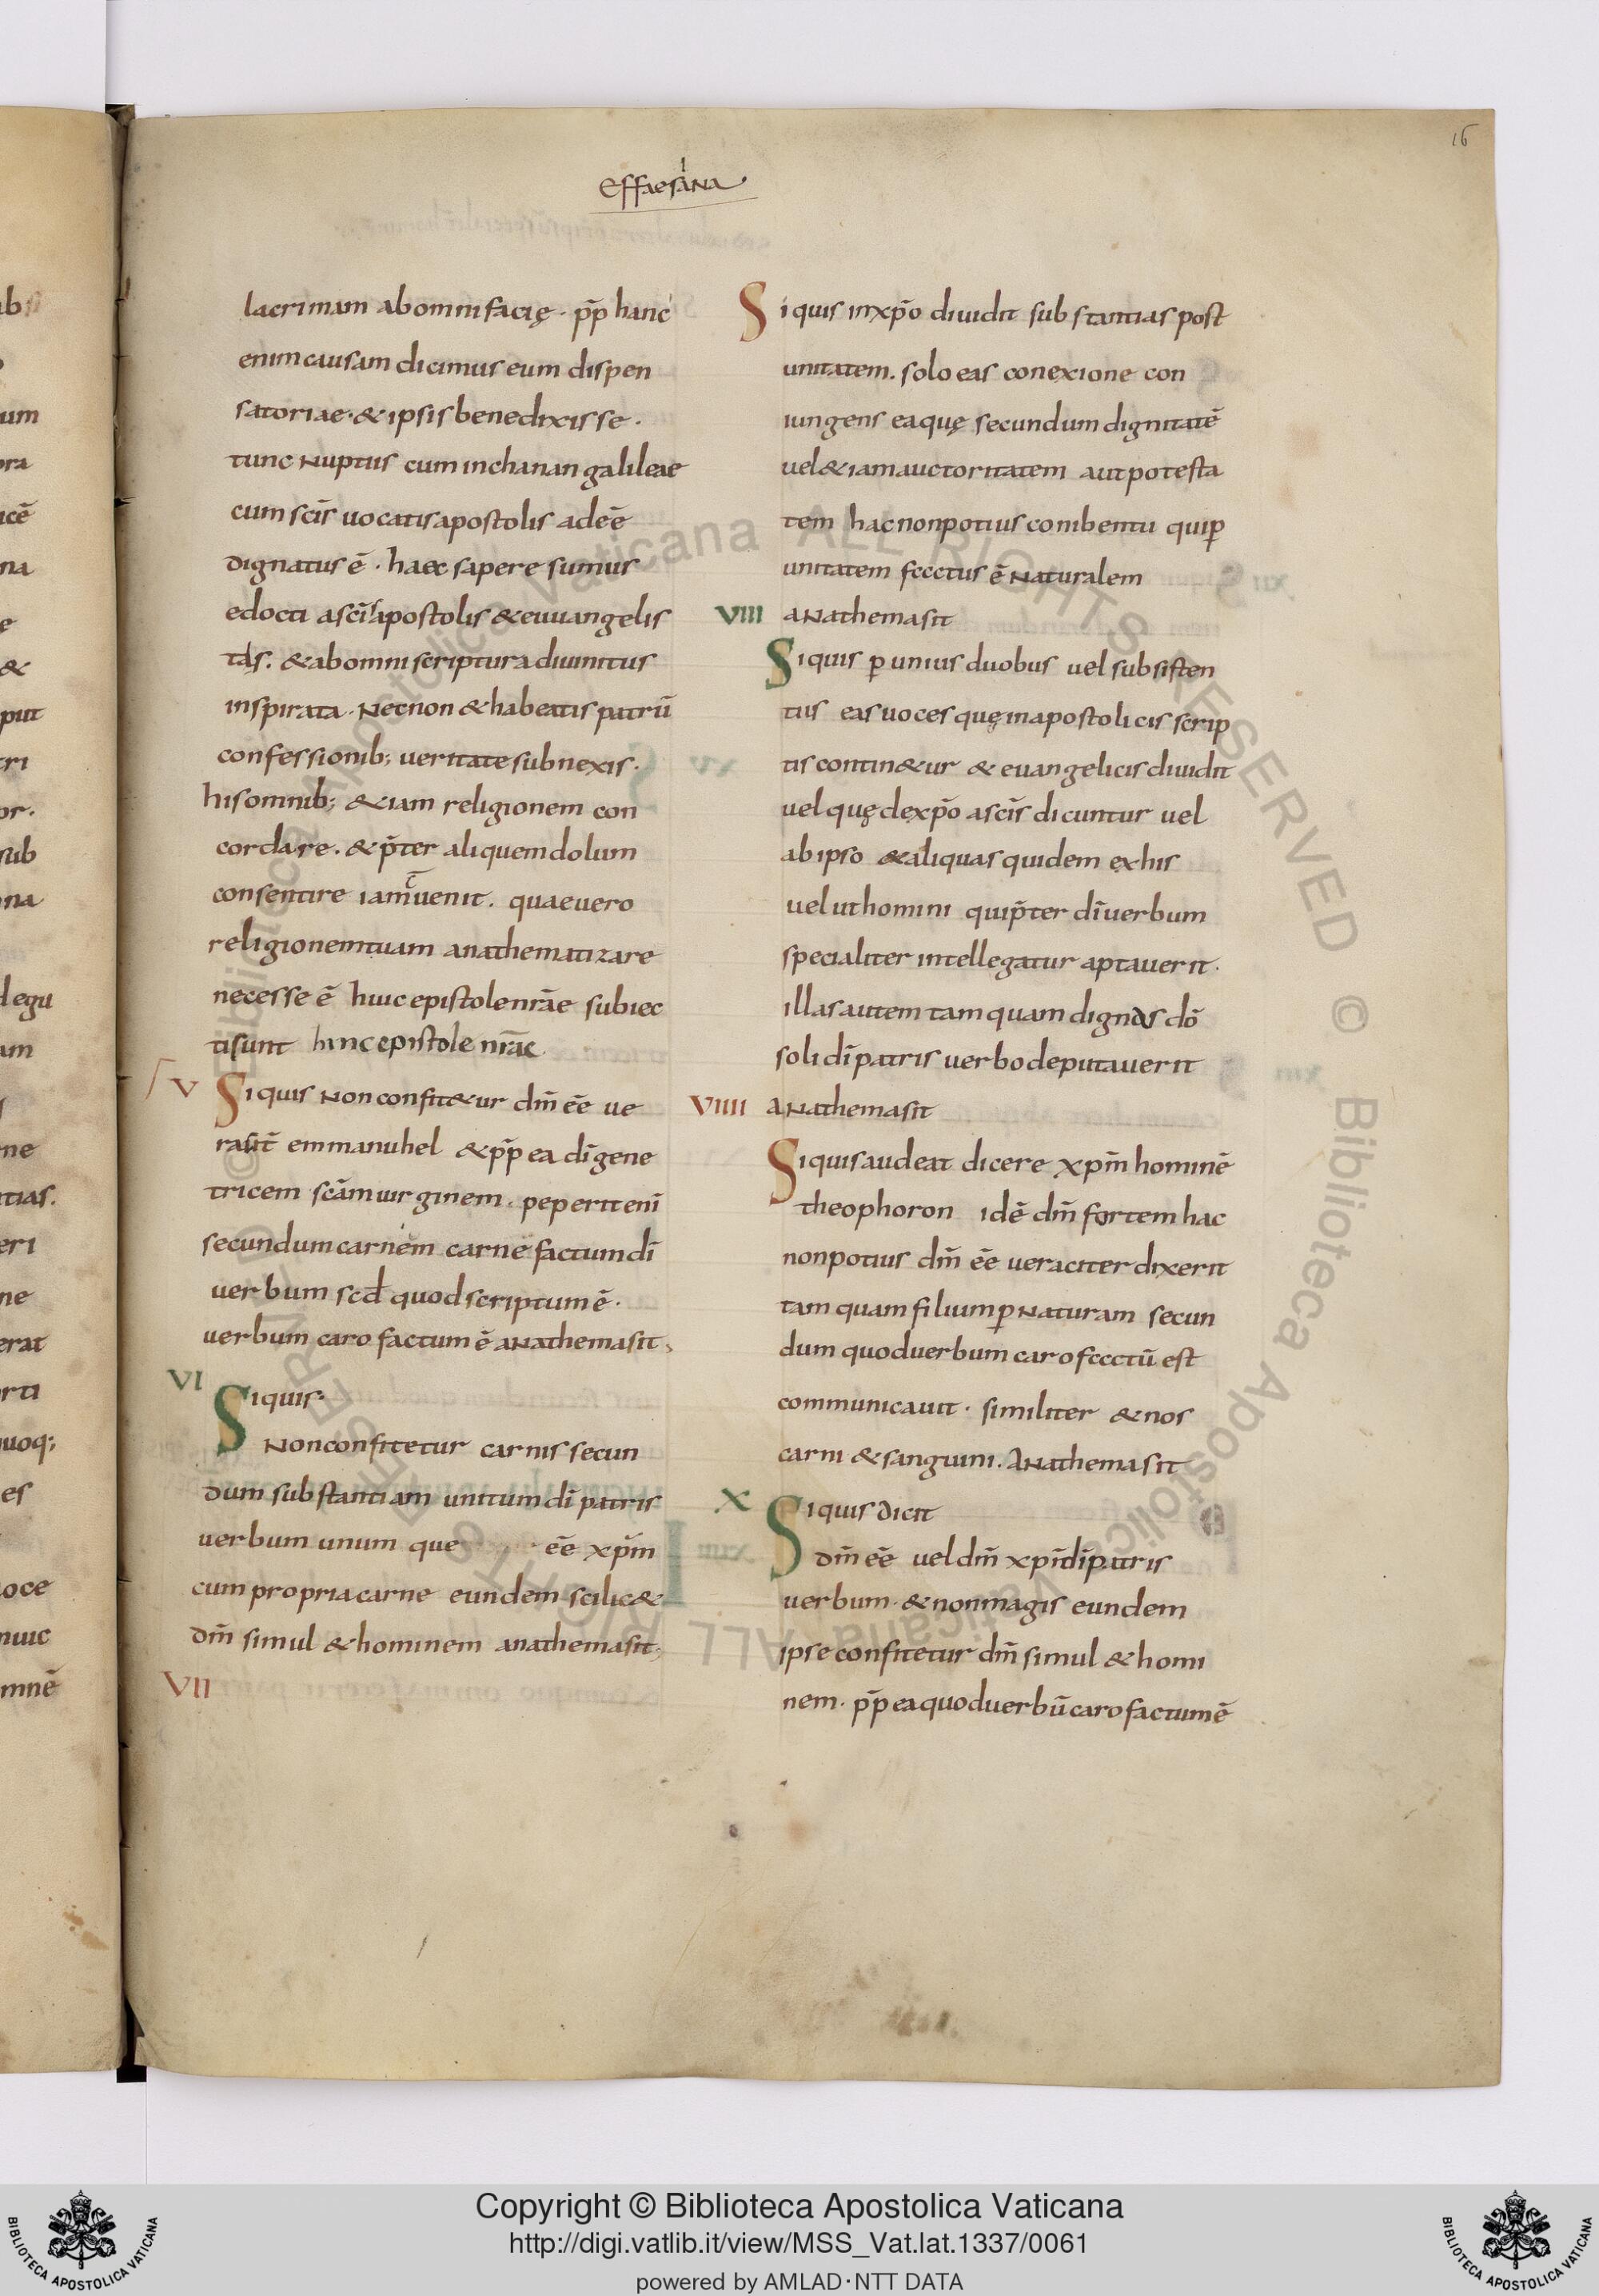 16
Effaesina
lacrimam ab omni facię · pp̄ hanc
enim causam dicimus eum dispen
satoriae · & ipsis benedixisse ·
tunc nuptiis cum in chanan galileae
cum scīs uocatis apostolis adeē
dignatus ē · haec sapere sumus
edocti a scīs apostolis & euuangelis
tas. & ab omni scriptura diuinitus
inspirata · Necnon & habeatis patrū
confessionib; ueritate subnexis ·
his omnib; & iam religionem con
cordare. & p̄ter aliquem dolum
consentire iam uenit. quae uero
religionem tuam anathematizare
necesse ē huic epistole nr̄ae subiec
ti sunt hinc epistole nr̄ae
V Si quis non confit&ur dm̄ eē ue
emmanuhel & pp̄ ea dī gene
tricem scām uirginem · peperit enī
secundum carnem carne factum dī
uerbum scd quod scriptum ē ·
uerbum caro factum ē anathema sit
VI
Si quis ·
Non confitetur carnis secun
dum substantiam unitum dī patris
uerbum unum que eē xpm̄
cum propria carne eundem scilic&
dm̄ simul & hominem anathema sit
VII
Si quis in xpō diuidit substantias post
unitatem. solo eas conexione con
iungens ea quę secundum dignitatē
uel & iam auctoritatem aut potesta
tem hac non potius conibentu qui p
unitatem factus ē naturalem
VIII anathema sit
Si quis p unius duobus uel subsisten
tiis eas uoces quę in apostolicis scrip
tis contin&ur & euangelicis diuidit
uel quę de xpō a scīs dicuntur uel
ab ipso & aliquas quidem ex his
uelut homini qui p̄ter dī uerbum
specialiter intellegatur aptauerit ·
illas autem tamquam dignas dō
soli dī patris uerbo deputauerit
VIIII anathema sit
Si quis audeat dicere xpm̄ hominē
theophoron idē dm̄ fortem hac
non potius dm̄ eē ueraciter dixerit
tamquam filium p naturam secun
dum quod uerbum caro factū est
communicauit · similiter & nos
carni & sanguini. Anathema sit
X Si quis dicit
dm̄ eē uel dm̄ xpī dī patris
uerbum · & non magis eundem
ipse confitetur dm̄ simul & homi
nem · pp̄ ea quod uerbū caro factum ē
Copyright © Biblioteca Apostolica Vaticana
http://digi.vatlib.it/view/MSS_Vat.lat.1337/0061
powered by AMLAD·NTT DATA
BIBLIOTECA APOSTOLICA VATICANA
BIBLIOTECA APOSTOLICA VATICANA